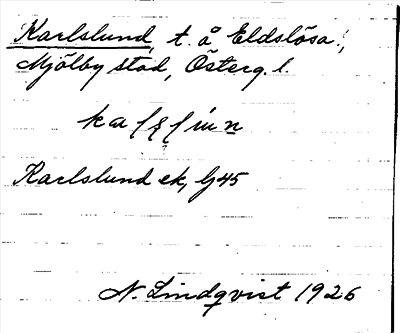 Karlslund, t. å Eldslösa,
Mjölby stad, Österg. l.
Karlslund ek, bj 45
N. Lindqvist 1926